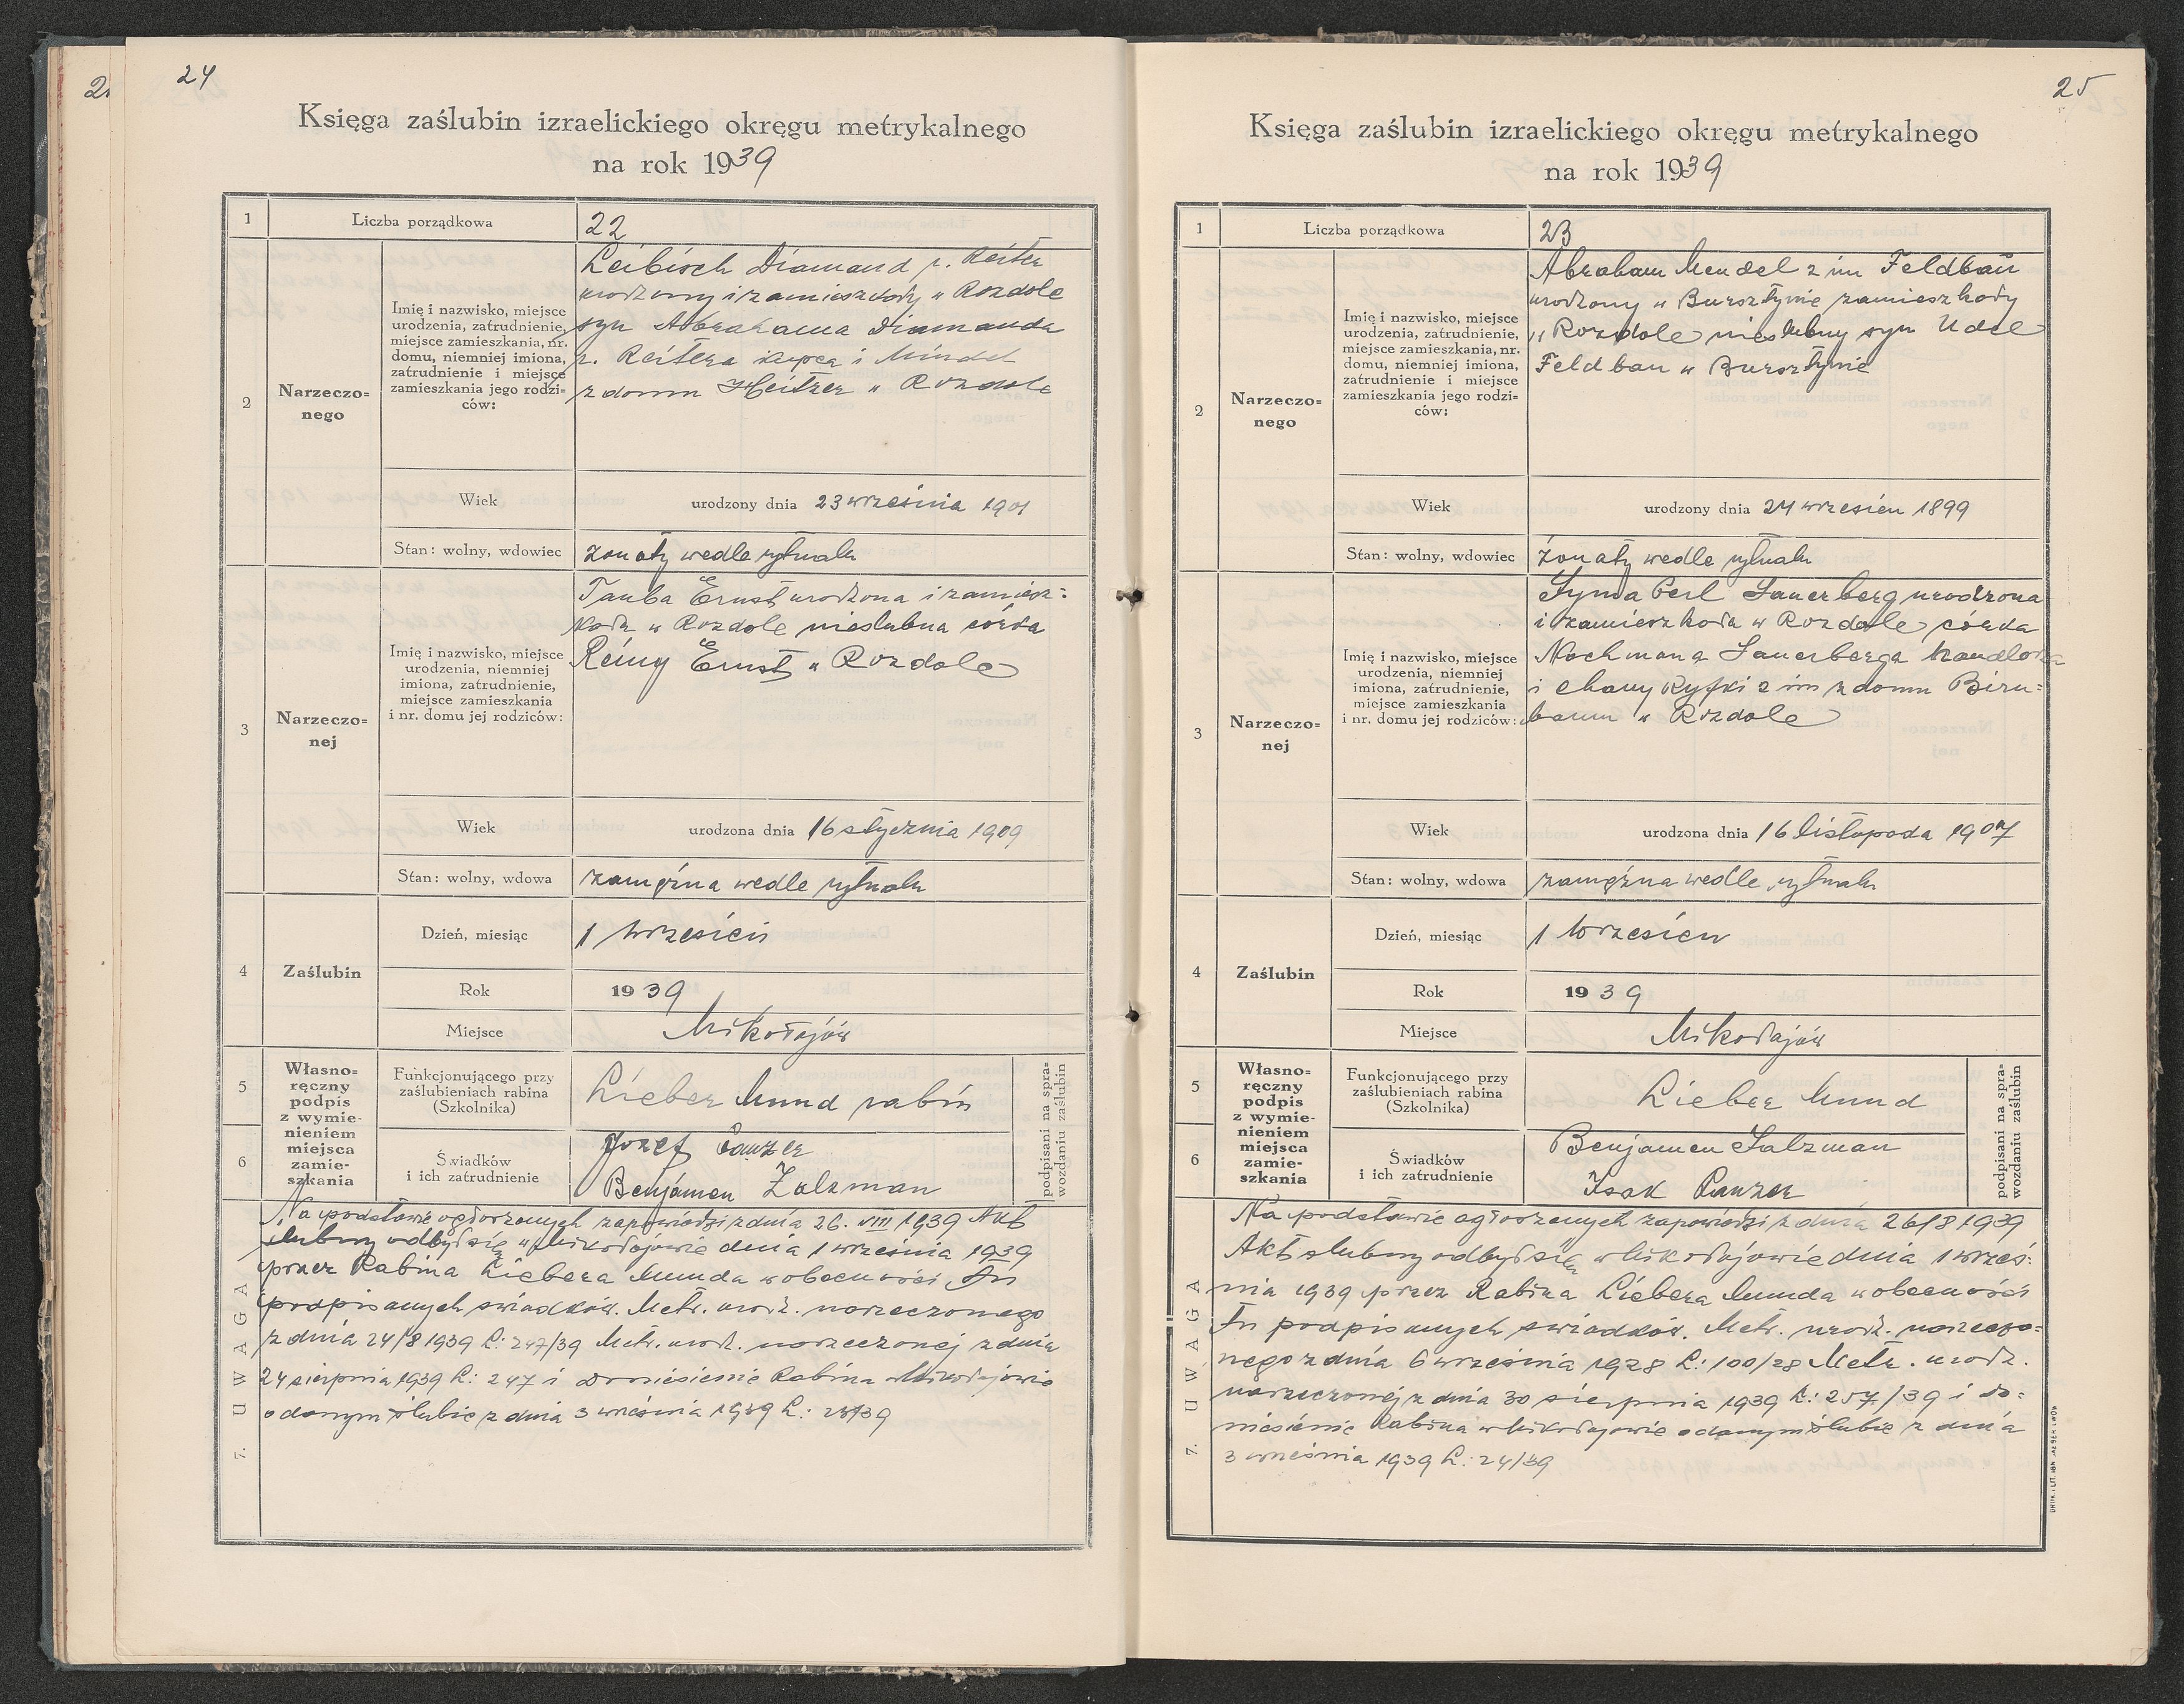 24
Księga zaślubin izraelickiego okręgu metrykalnego
na rok 1939
1
Liczba porządkowa
22
2
Narzeczo=
nego
Imię i nazwisko, miejsce
urodzenia, zatrudnienie,
miejsce zamieszkania, nr.
domu, niemniej imiona,
zatrudnienie i miejsce
zamieszkania jego rodzi=
ców:
Leibisch Diamand r. Reiter
urodzony i zamieszkały w Rozdole
syn Abrahama Diamanda
r. Reitera kupca i Mindel
z domu Heitzer w Rozdole
Wiek
urodzony dnia 23 września 1901
Stan: wolny, wdowiec
żonaty wedle rytuału
3
Narzeczo=
nej
Imię i nazwisko, miejsce
urodzenia, niemniej
imiona, zatrudnienie,
miejsce zamieszkania
i nr. domu jej rodziców:
Tauba Ernst urodzona i zamiesz=
kała w Rozdole nieslubna córka
Reiny Ernst w Rozdole
Wiek
urodzona dnia 16 stycznia 1909
Stan: wolny, wdowa
zamężna wedle rytuału
4
Zaślubin
Dzień, miesiąc
1 wrzesień
Rok
1939
Miejsce
Mikołajów
5
Własno=
ręczny
podpis
z wymie-
nieniem
miejsca
zamie-
szkania
Funkcjonującego przy
zaślubieniach rabina
(Szkolnika)
Lieber Mund rabin
podpisani na spra-
wozdaniu zaślubin
6
Świadków
i ich zatrudnienie
Józef Panzer
Benjamen Zalzman
7. UWAGA
Na podstawie ogłoszonych zapowiedzi z dnia 26. VIII 1939 Akt
slubny odbył się w Mikołajowie dnia 1 września 1939
przez Rabina Liebera Munda w obecności tu
podpisanych swiadków. Metr. urodz. narzeczonego
z dnia 24/8 1939 L: 247/39 Metr. urodz. narzeczonej z dnia
24 sierpnia 1939 L: 247 i doniesienie Rabina w Mikołajowie
o danym slubie z dnia 3 września 1939 L: 23/39
25
Księga zaślubin izraelickiego okręgu metrykalnego
na rok 1939
1
Liczba porządkowa
23
2
Narzeczo=
nego
Imię i nazwisko, miejsce
urodzenia, zatrudnienie,
miejsce zamieszkania, nr.
domu, niemniej imiona,
zatrudnienie i miejsce
zamieszkania jego rodzi=
ców:
Abraham Mendel 2 im Feldbau
urodzony w Bursztynie zamieszkały
w Rozdole nieslubny syn Udel
Feldbau w Bursztynie
Wiek
urodzony dnia 24 wrzesień 1899
Stan: wolny, wdowiec
żonaty wedle rytuału
3
Narzeczo=
nej
Imię i nazwisko, miejsce
urodzenia, niemniej
imiona, zatrudnienie,
miejsce zamieszkania
i nr. domu jej rodziców:
Syma Perl Sauerberg urodzona
i zamieszkała w Rozdole córka
Nachmana Sauerberga handlarza
i Chany Ryfki 2 im z domu Birn=
baum w Rozdole
Wiek
urodzona dnia 16 listopada 1907
Stan: wolny, wdowa
zamężna wedle rytuału
4
Zaślubin
Dzień, miesiąc
1 wrzesień
Rok
1939
Miejsce
Mikołajów
5
Własno=
ręczny
podpis
z wymie-
nieniem
miejsca
zamie-
szkania
Funkcjonującego przy
zaślubieniach rabina
(Szkolnika)
Lieber Mund
podpisani na spra-
wozdaniu zaślubin
6
Świadków
i ich zatrudnienie
Benjamen Salzman
Isak Panzer
7. UWAGA
Na podstawie ogłoszonych zapowiedzi z dnia 26/8 1939
Akt slubny odbył się w Mikołajowie dnia 1 wrześ=
nia 1939 przez Rabina Liebera Munda w obecności
tu podpisanych swiadków. Metr. urodz. narzeczo=
nego z dnia 6 września 1928 L: 100/28 Metr. urodz.
narzeczonej z dnia 30 sierpnia 1939 L: 257/39 i do=
niesienie Rabina w Mikołajowie o danym slubie z dnia
3 września 1939 L: 24/39